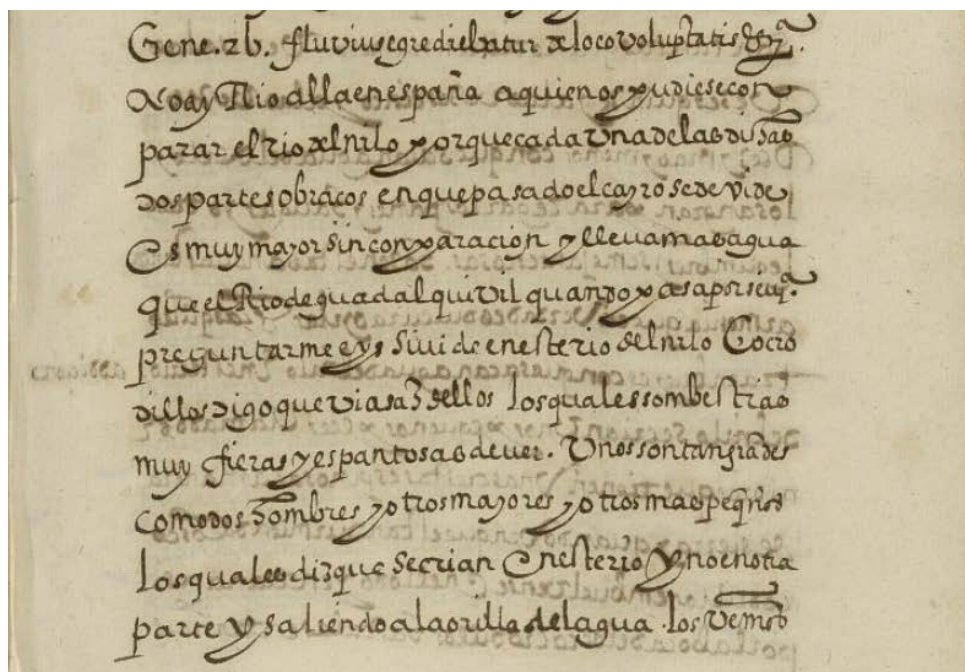 Gene. 2 b. fluvius egrediebatur de loco voluptatis
No ay Rio alla en españa a quien os pudiese con
parar el rio del nilo porque cada una de las dichas
dos partes o bracos en que pasado el cayro se devide
Es muy mayor sin conparacion y lleva mas agua
que el Rio de guadalquivil quando pasa por sevi.ª
preguntarme eys si vi de eneste rio del nilo Cocro
dillos digo que vi asaz dellos los quales son bestias
muy fieras y espantosas de ver. Unos son tan grandes
como dos hombres y otros mayores y otros mas peqños
los quales diz que se crian Eneste rio y no en otra
parte y saliendo a la orilla del agua. los vemos